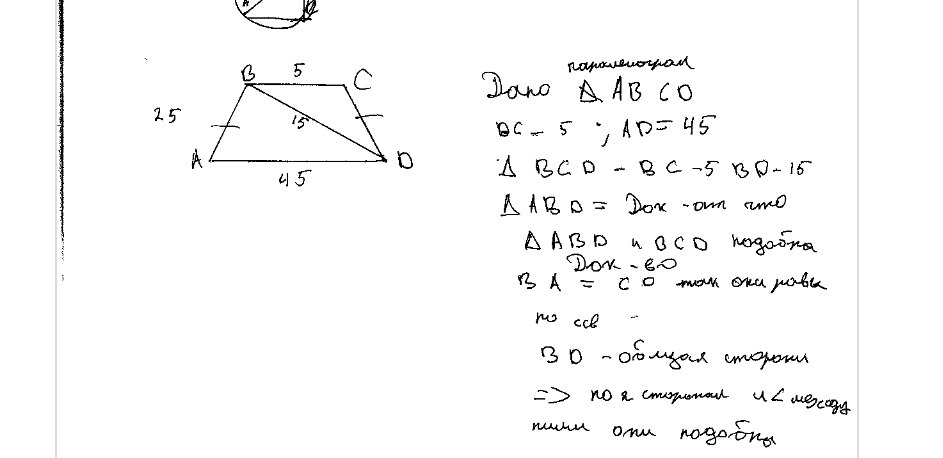 B 5 C
25
15
A D
45
паралелограм
Дано Δ ABCD
BC - 5 ; AD = 45
Δ BCD - BC - 5 BD - 15
Δ ABD = Док-ат что
Δ ABD и BCD подобны
Док-во
BA = CD так они равы
по ссв -
BD - общая сторона
=> по 2 сторонам и < между
ними они подобны